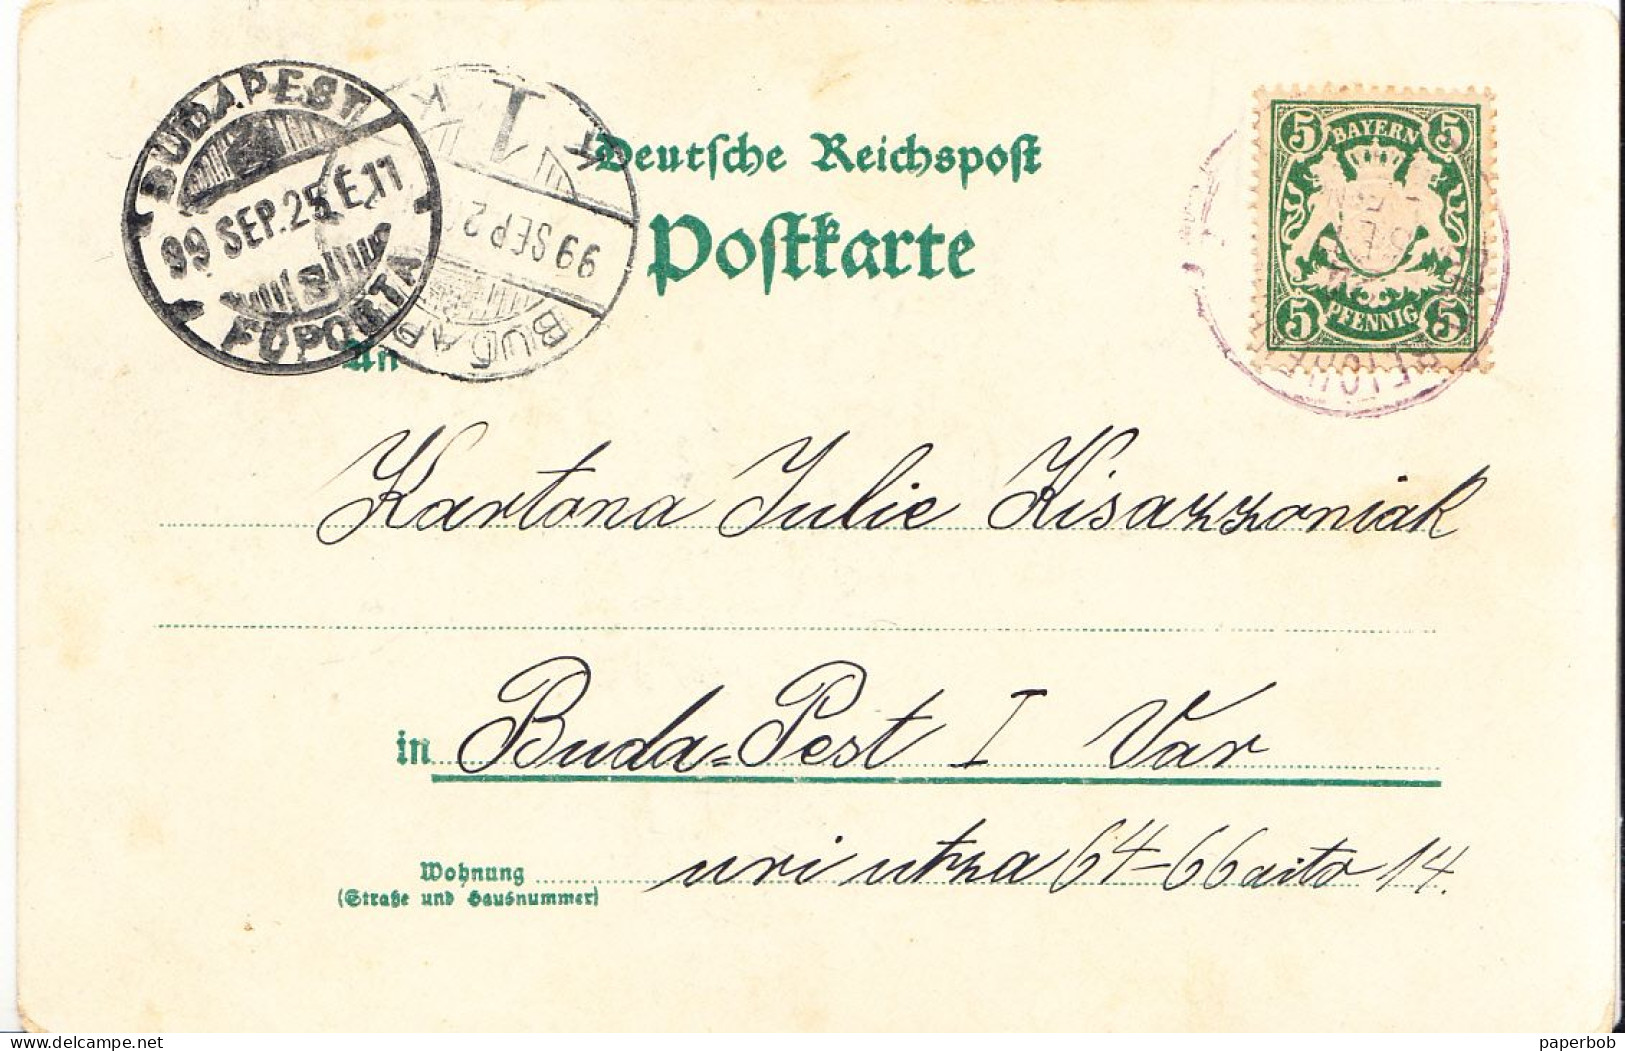 BUDAPEST
99 SEP. 25 É. 11
FŐPOSTA
1 K
99 SEP 2
BUDAP
Deutsche Reichspost
Postkarte
5 BAYERN 5
5 PFENNIG 5
An
Kartona Julie Kisazzoniak
in Buda=Pest I Var
Wohnung uri utza 64-66 aito 14.
(Straße und Hausnummer)
delcampe.net
paperbob